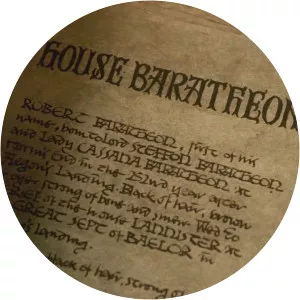 HOUSE BARATHEON
ROBERT BARATHEON, first of his
name, born to Lord STEFFON BARATHEON
and Lady CASSANA BARATHEON at
Storm's End in the 252nd year after
Aegon's Landing. Black of hair, brown
of eye strong of bone and sinew. Wed to
of the house LANNISTER at
GREAT SEPT of BAELOR in
Landing.
black of hair, strong of